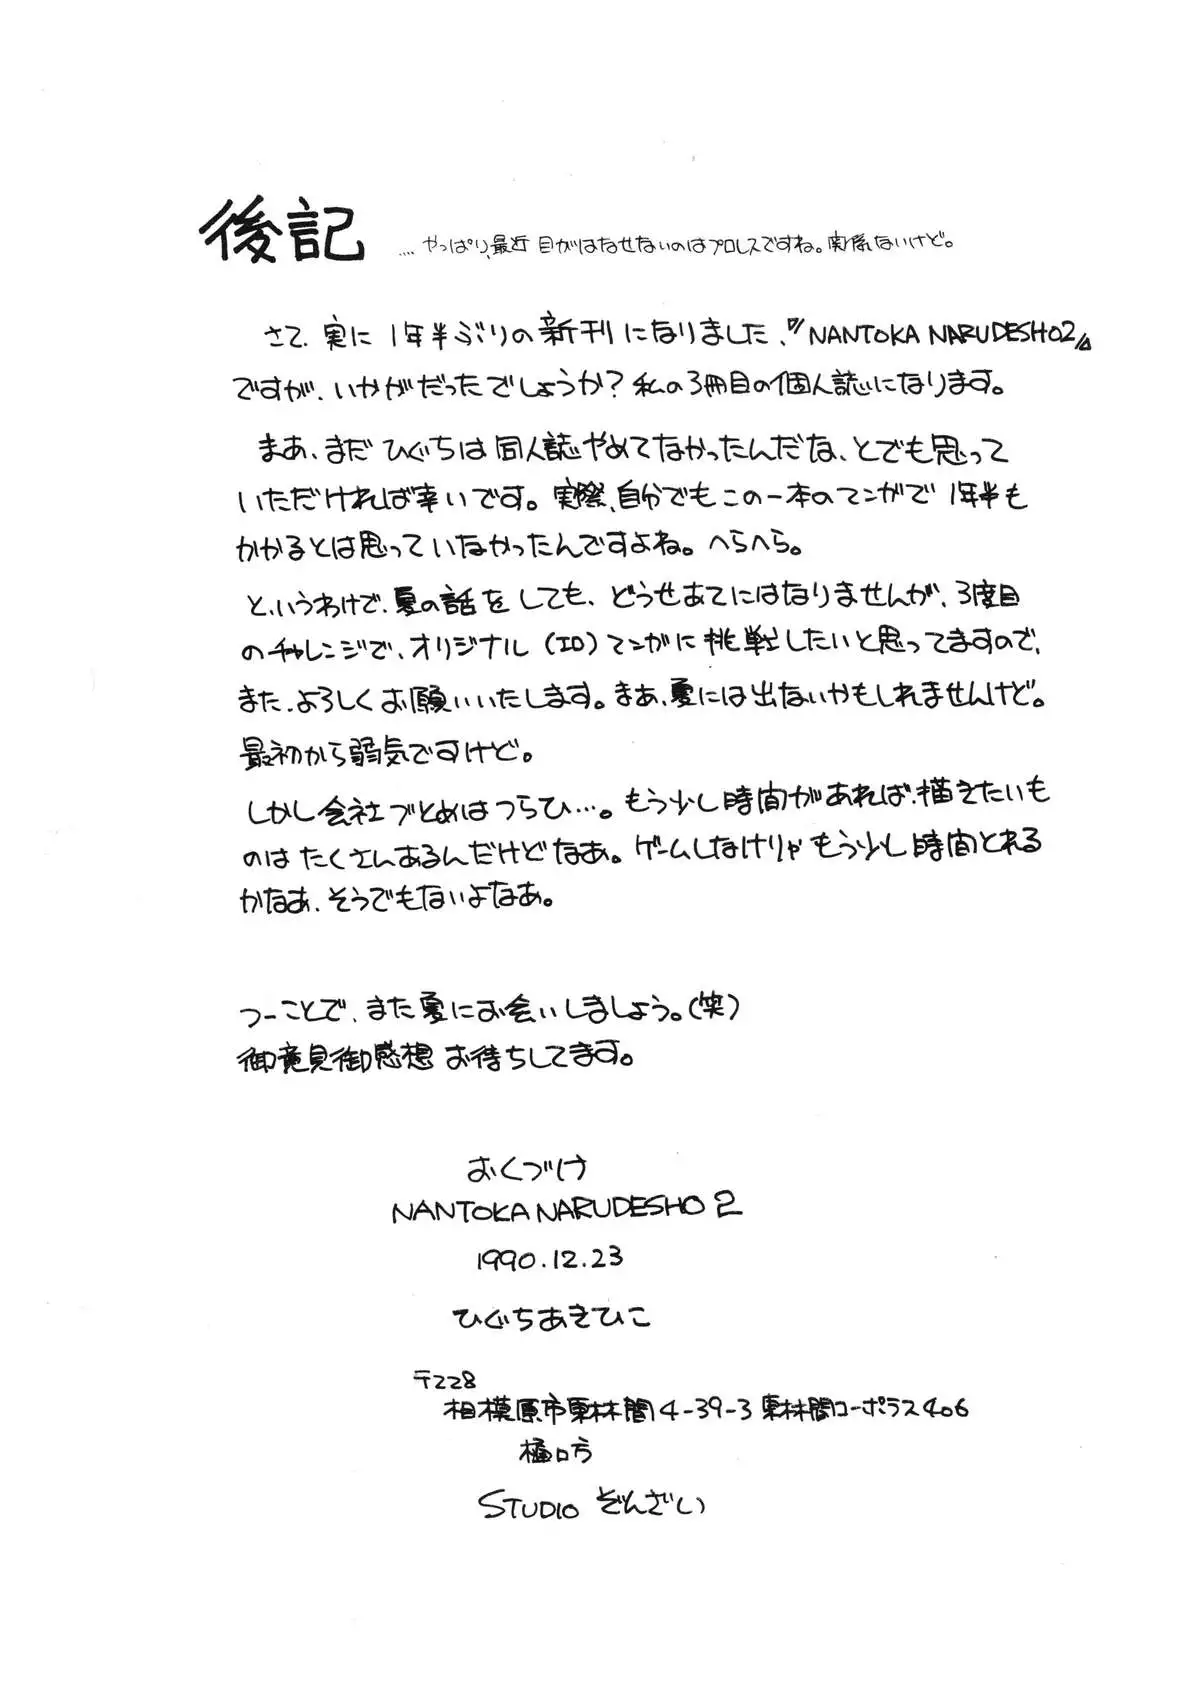 後記 ‥‥やっぱり、最近 目がはなせないのはプロレスですね。関係ないけど。
さて、実に 1年半ぶりの新刊になりました、『NANTOKA NARUDESHO2』
ですが、いかがだったでしょうか？私の3冊目の個人誌になります。
まあ、まだひぐちは同人誌やめてなかったんだな、とでも思って
いただければ幸いです。実際、自分でもこの一本のマンガで 1年半も
かかるとは思っていなかったんですよね。へらへら。
というわけで、夏の話をしても、どうせあてにはなりませんが、3度目
のチャレンジで、オリジナル（エロ）マンガに挑戦したいと思ってますので、
また、よろしくお願いいたします。まあ、夏には出ないかもしれませんけど。
最初から弱気ですけど。
しかし会社づとめはつらひ…。もう少し時間があれば、描きたいも
のはたくさんあるんだけどなあ。ゲームしなけりゃもう少し時間とれる
かなあ、そうでもないよなあ。
つーことで、また夏にお会いしましょう。(笑)
御意見御感想 お待ちしてます。
おくづけ
NANTOKA NARUDESHO 2
1990.12.23
ひぐちあきひこ
〒228
相模原市東林間4-39-3 東林間コーポラス406
樋口方
STUDIO ぞんざい